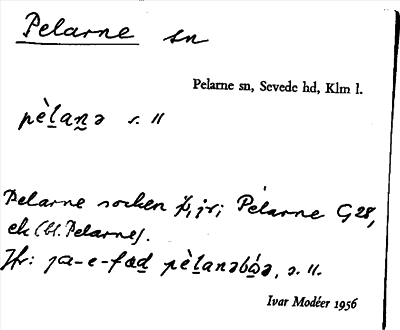 Pelarne sn
Pelarne sn, Sevede hd, Klm l.
pèḻaṉə s. ll
Pelarne socken Pelarne G 28,
ek (bl. Pelarne).
Jfr: ja-e-fœḏ pèḻanəbóə, s. ll.
Ivar Modéer 1956